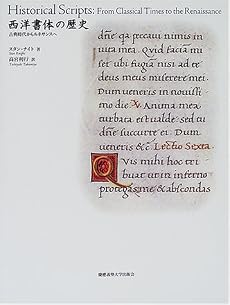 Historical Scripts: From Classical Times to the Renaissance
西洋書体の歴史
古典時代からルネサンスへ
スタン・ナイト 著
Stan Knight
髙宮利行 訳
Toshiyuki Takamiya
dñe peccaui nimis in
uita mea Quid faciam mi
ser ubi fugiam nisi ad te
deus meus miserere mei
dum ueneris in nouissi
mo die. Anima mea
turbata est ualde sed tu
dñe succurre ei Lectio Sexta
Quis mihi hoc tri
buat ut in inferno
protegas me & abscondas
慶應義塾大学出版会